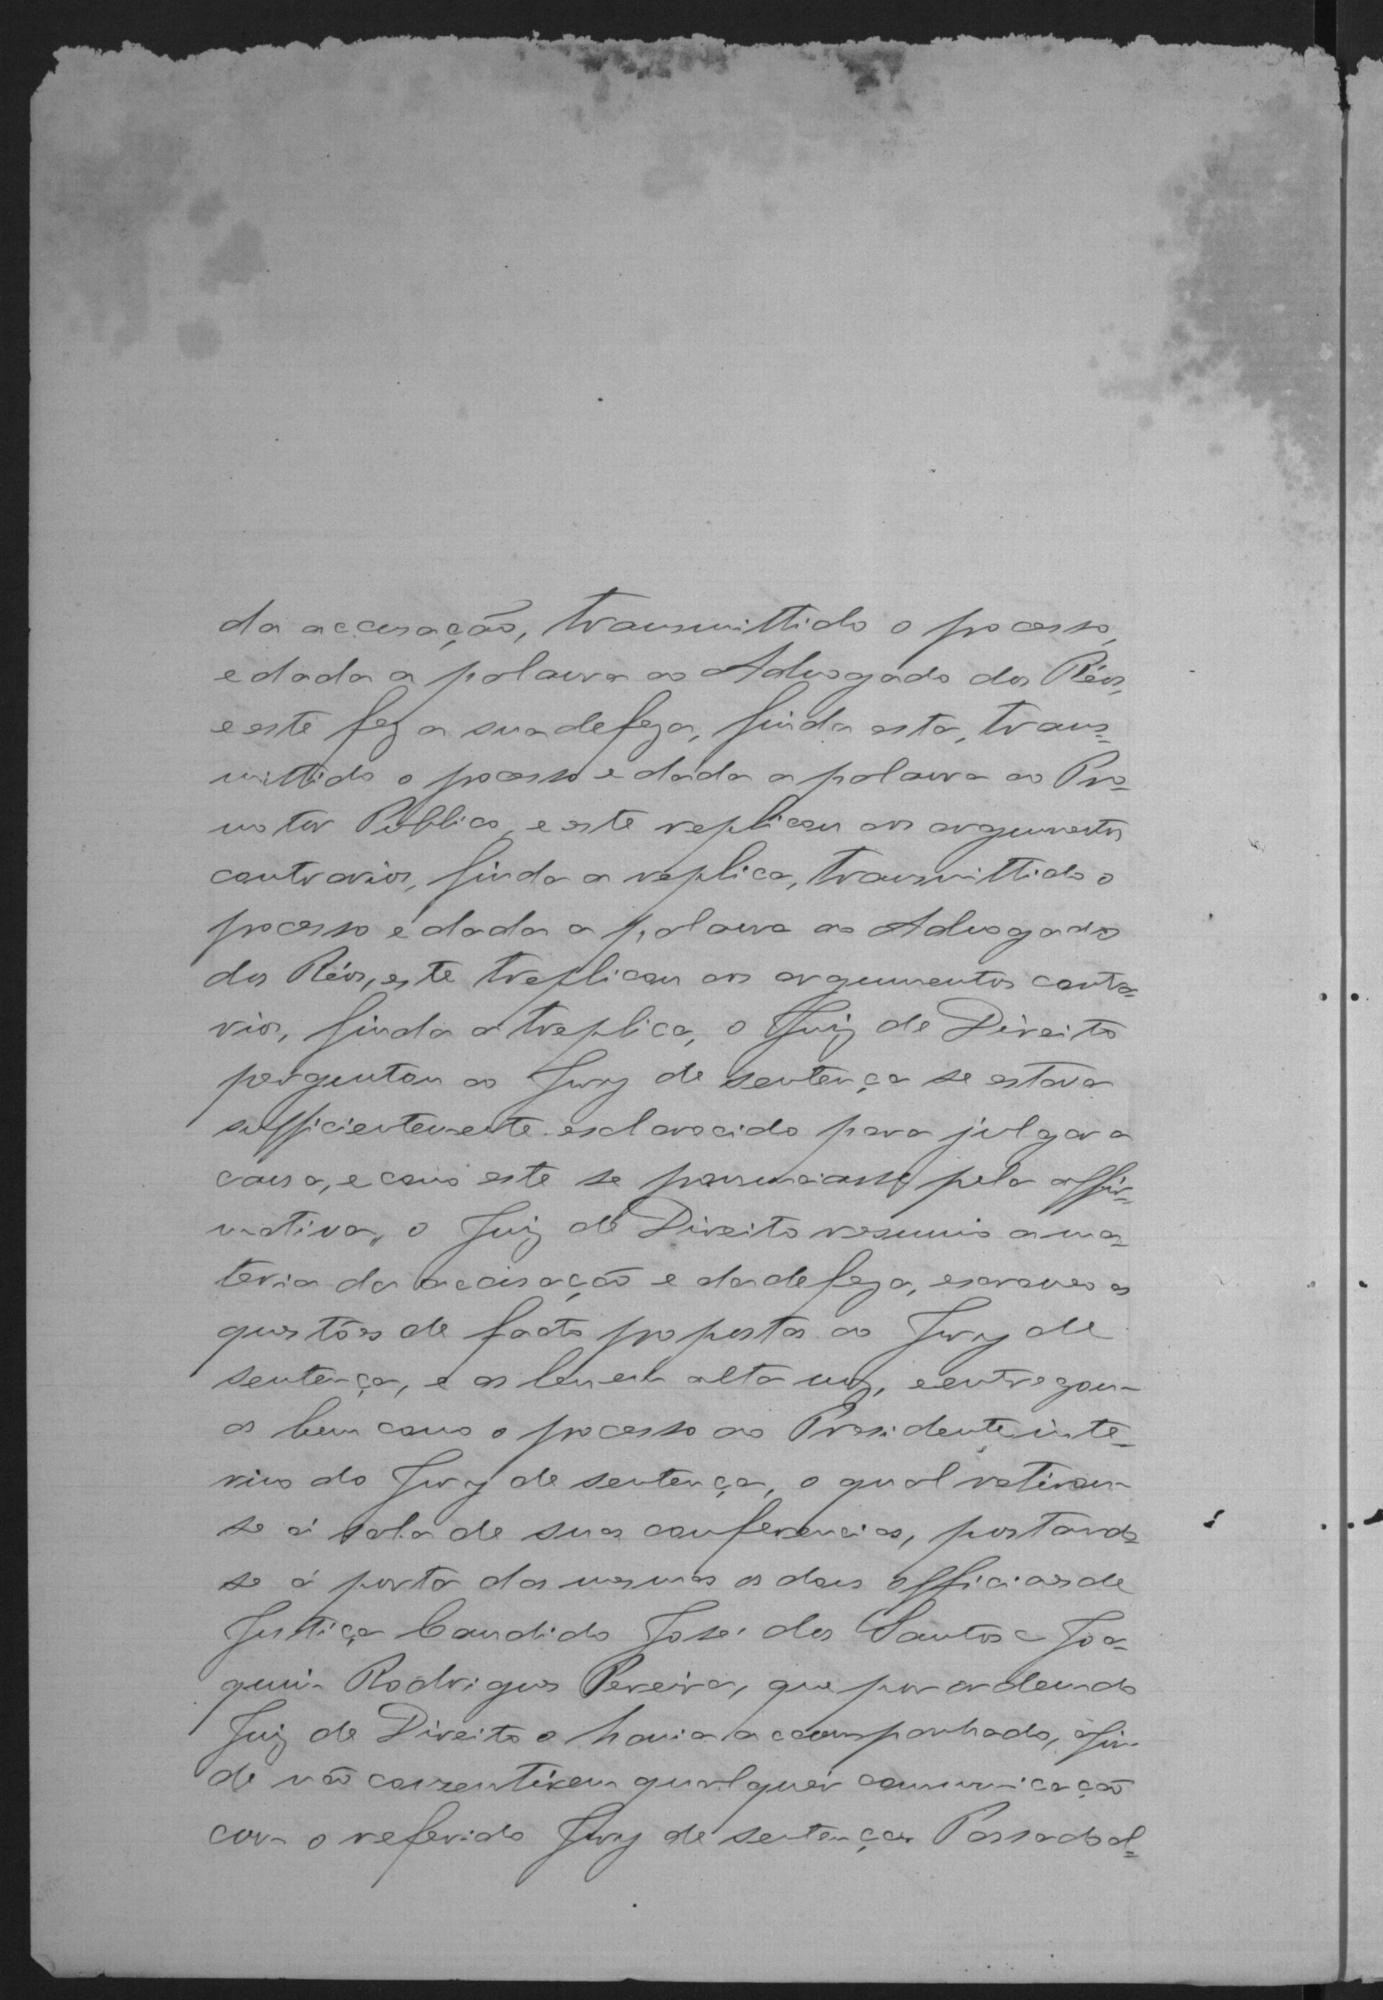 da accusação, transmittido o pocesso,
e dada a palavra ao Advogado dos Réos,
e este fez a sua defeza, finda esta, trans=
mittido o pocesso e dada a palavra ao Pro=
motor Publico, e este replicou aos argumentos
contrarios, finda a replica, transmittido o
pocesso e dada a palavra ao Advogado
dos Réos, este treplicou aos argumentos contra=
rios, finda a treplica, o Juiz de Direito
perguntou ao Jury de sentença se estava
sufficientemente esclarecido para julgar a
causa, e como este se pronunciasse pela affir=
mativa, o Juiz de Direito resumio a ma=
teria da accusação e da defeza, escreveo as
questões de facto propostas ao Jury de
sentença, e as leu em alta voz, e entregou-
as bem como o pocesso ao Presidente inte=
rino do Jury de sentença, o qual retirou-
se á sala de suas conferencias, postando=
se á porta das mesmas os dous officiaes de
Justiça Candido José dos Santos e Joa=
quim Rodrigues Pereira, que por ordem do
Juiz de Direito o havia accompanhado, afim
de não consentirem qualquer communicação
com o referido Jury de sentença. Passado al=